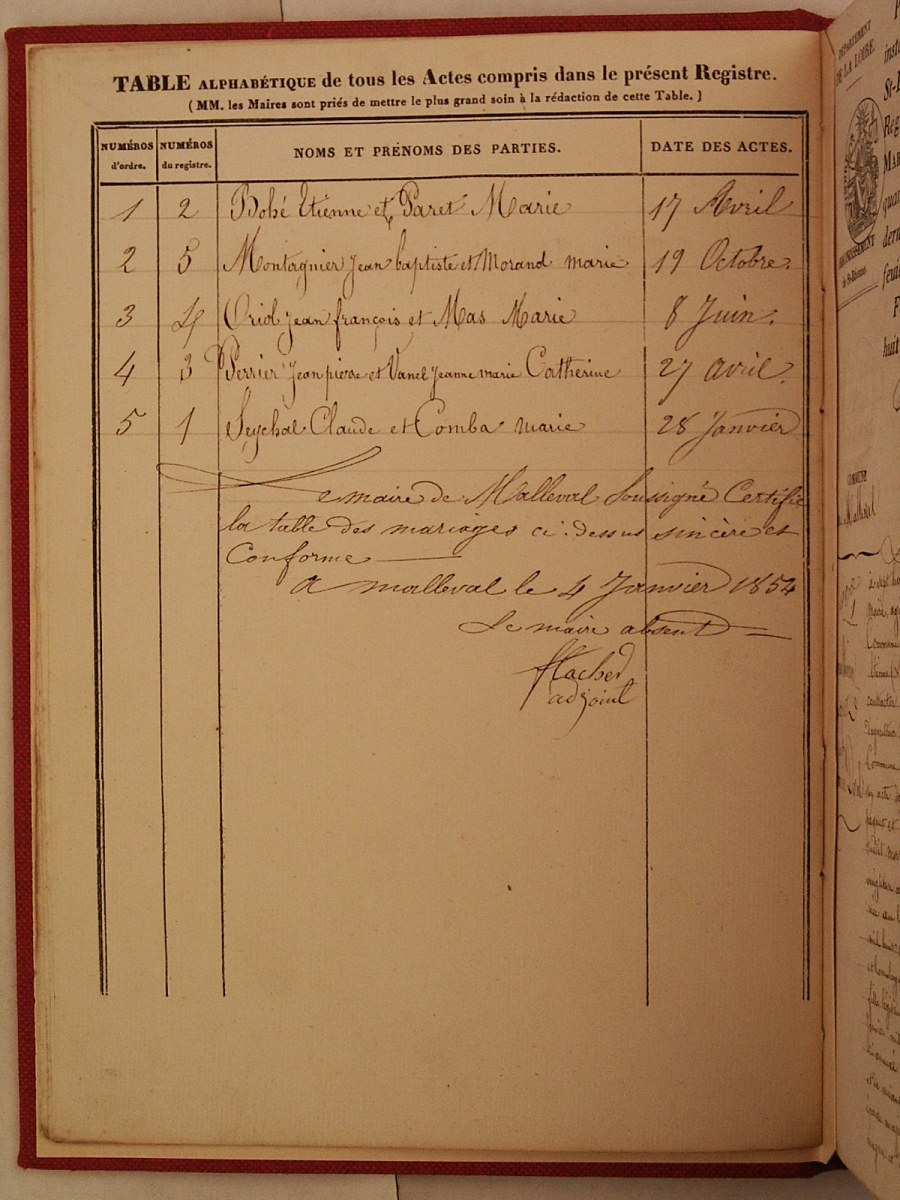 TABLE ALPHABÉTIQUE de tous les Actes compris dans le présent Registre.
( MM. les Maires sont priés de mettre le plus grand soin à la rédaction de cette Table. )
NUMÉROS d'ordre. NUMÉROS du registre. NOMS ET PRÉNOMS DES PARTIES. DATE DES ACTES.
1 2 Bohé Etienne et Paret Marie 17 Avril
2 5 Montagnier Jean baptiste et Morand marie 19 Octobre.
3 4 Oriol Jean françois et Mas Marie 8 Juin.
4 3 Perrier Jean pierre et Vanel Jeanne marie Catherine 27 avril.
5 1 Seychal Claude et Comba marie 28 Janvier
Le maire de Malleval Soussigné Certifie
la table des mariages ci-dessus sincère et
Conforme
A malleval le 4 Janvier 1854
Le maire absent
Flacher
adjoint
DÉPARTEMENT
DE LA LOIRE.
ARRONDISSEMENT
de St-Etienne.
COMMUNE